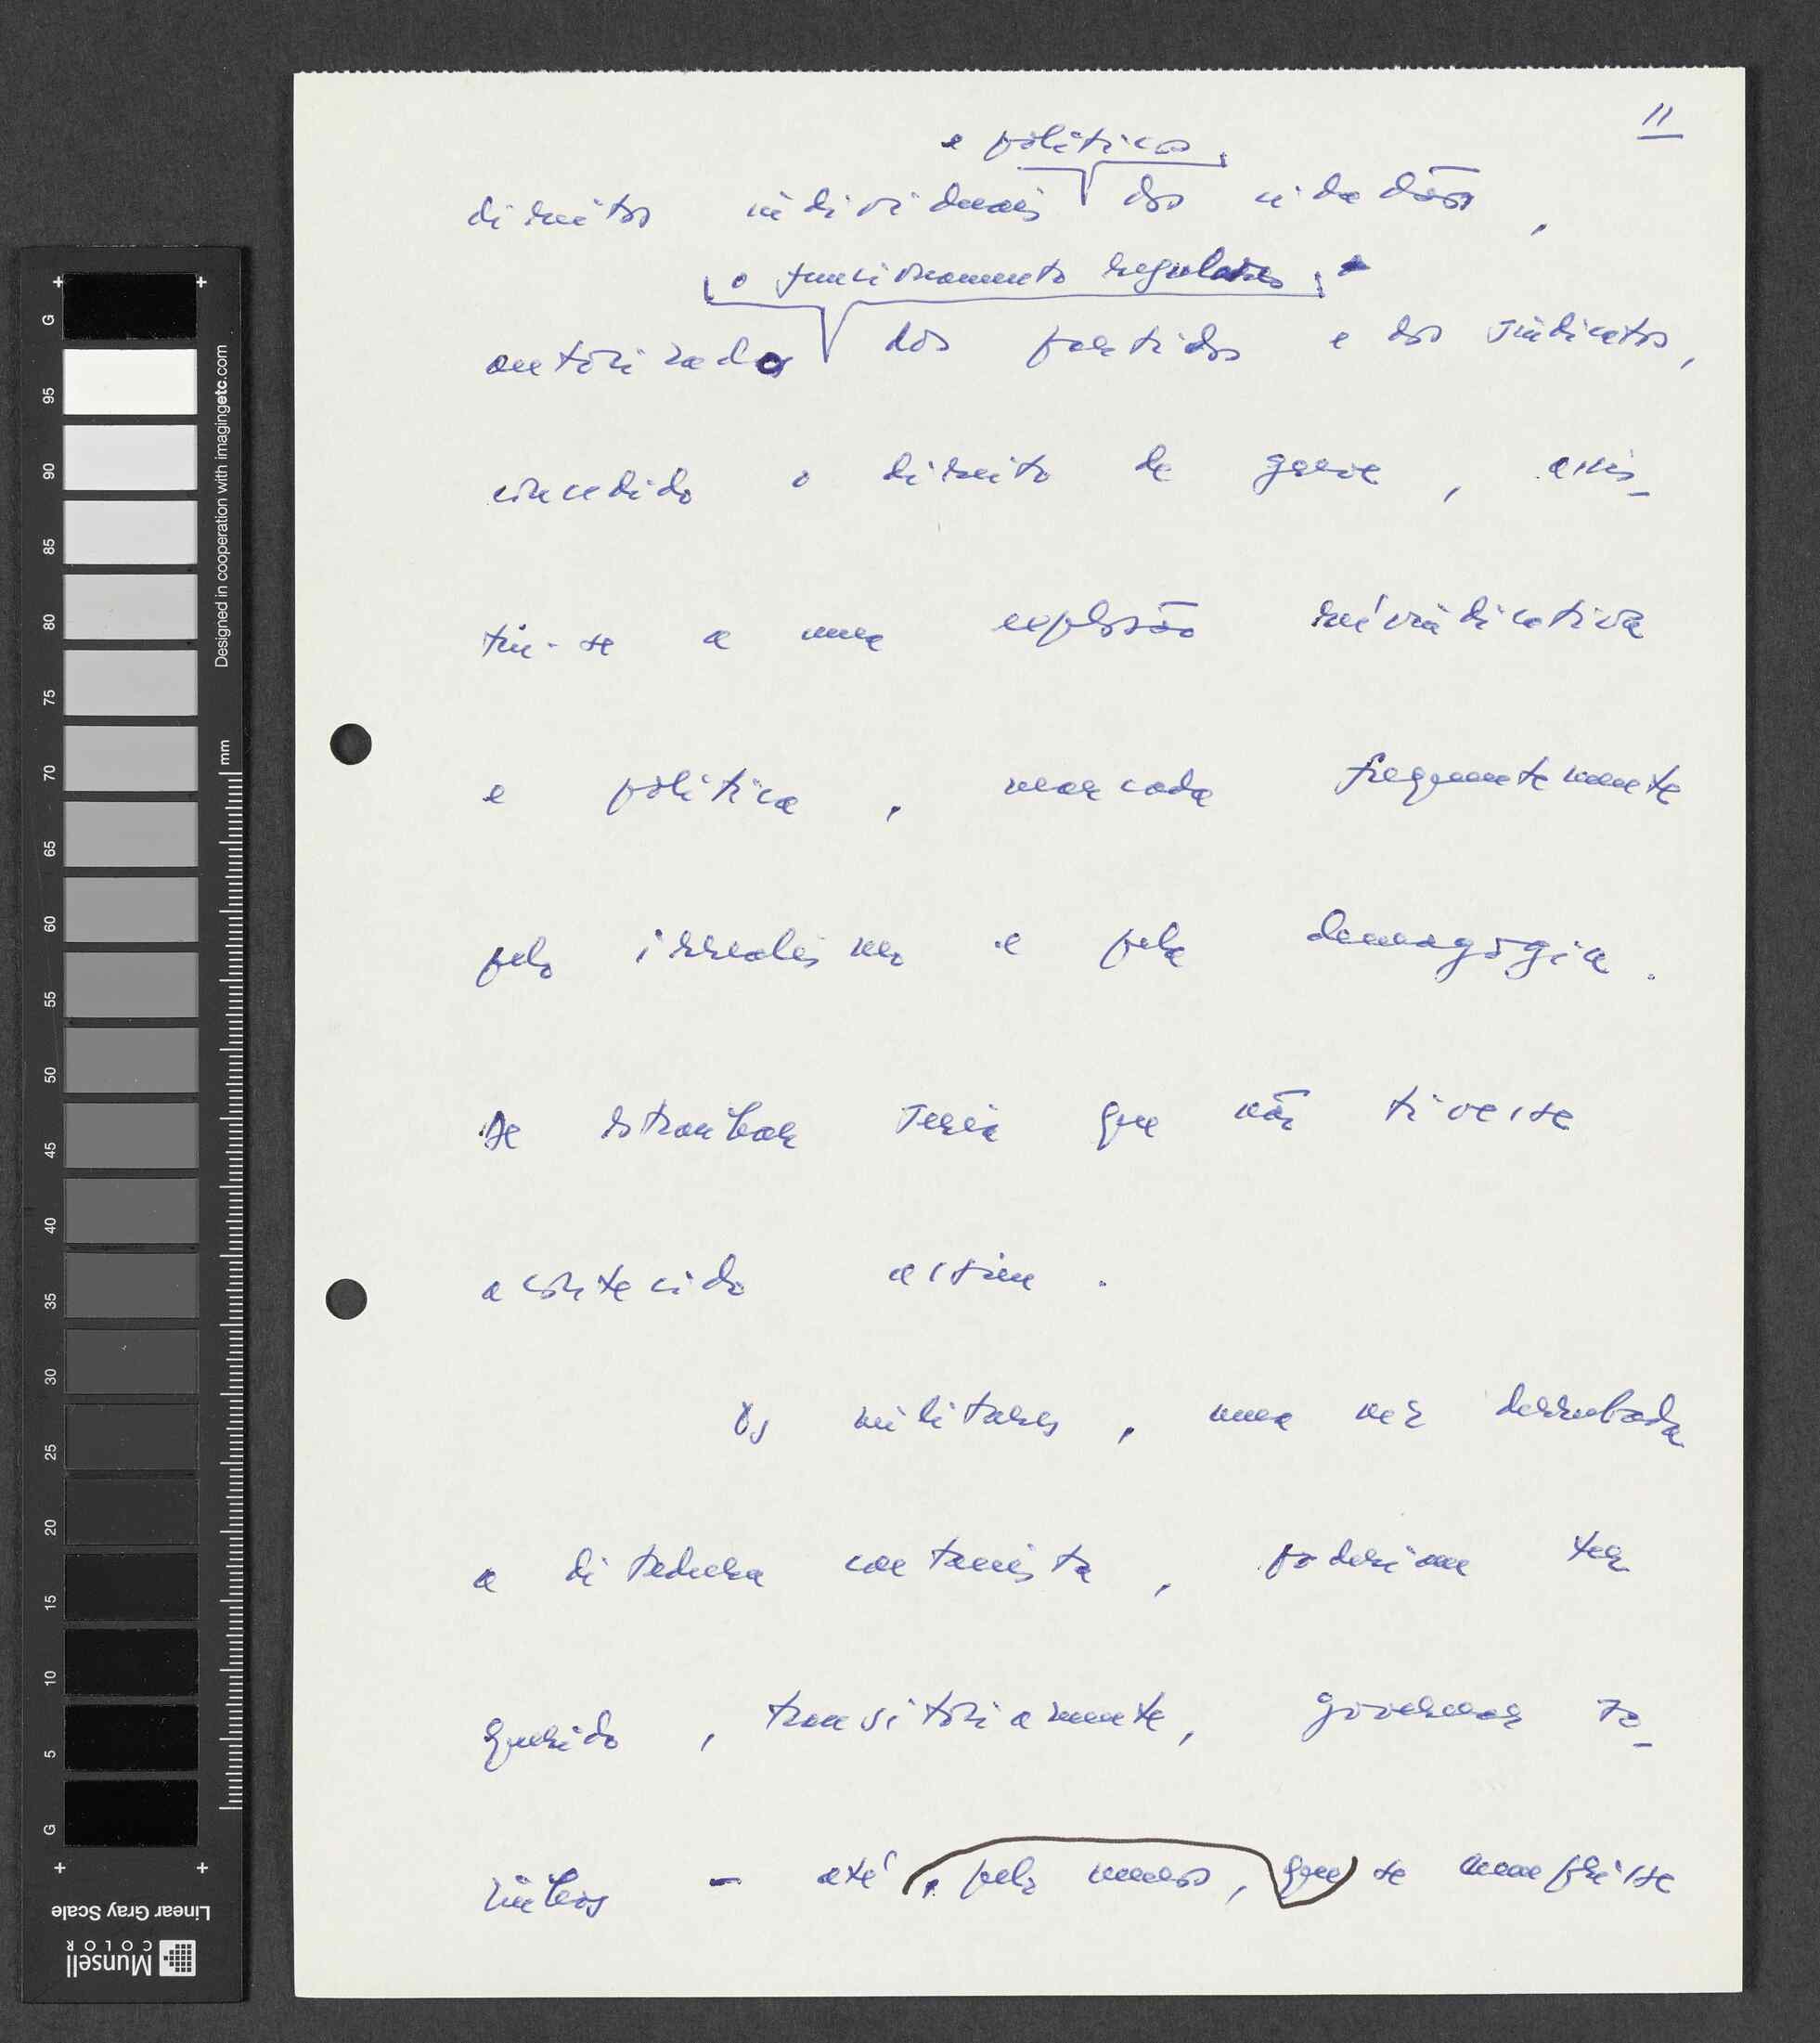 11
e políticos
direitos individuais dos cidadãos,
o funcionamento regular
autorizado dos partidos e dos sindicatos,
concedido o direito de greve, assis-
tiu-se a uma explosão reivindicativa
e política, marcada frequentemente
pelo irrealismo e pela demagogia.
De estranhar seria que não tivesse
acontecido assim.
Os militares, uma vez derrubada
a ditadura caetanista, poderiam ter
querido, transitoriamente, governar so-
zinhos - até, pelo menos, que se cumprisse
G
95
90
85
80
75
70
65
60
55
50
45
40
35
30
25
20
15
10
5
G
mm
Designed in cooperation with imagingetc.com
Linear Gray Scale
Munsell
COLOR